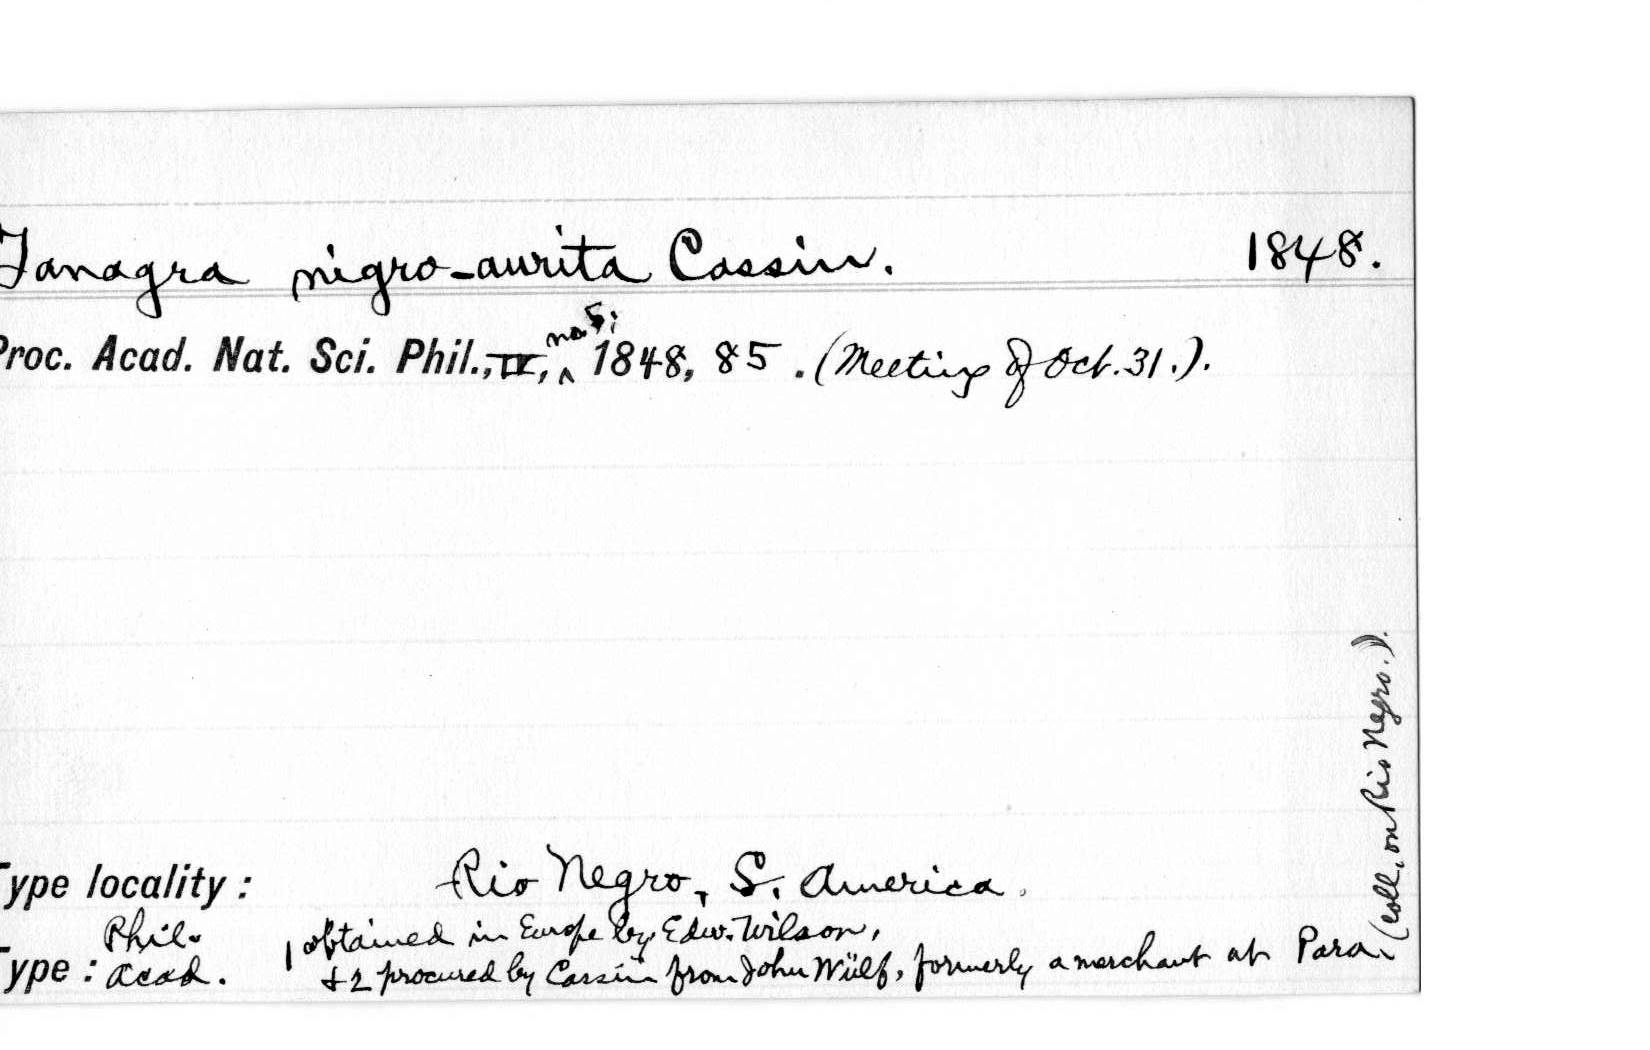 Tanagra nigro-aurita Cassin. 1848.
Proc. Acad. Nat. Sci. Phil., IV, no 5; 1848, 85. (Meeting of Oct. 31.).
Type locality: Rio Negro, S. America.
Type: Phil. Acad. 1 obtained in Europe by Edw. Wilson,
& 2 procured by Cassin from John Wülf, formerly a merchant at Para.
(Coll. on Rio Negro.).